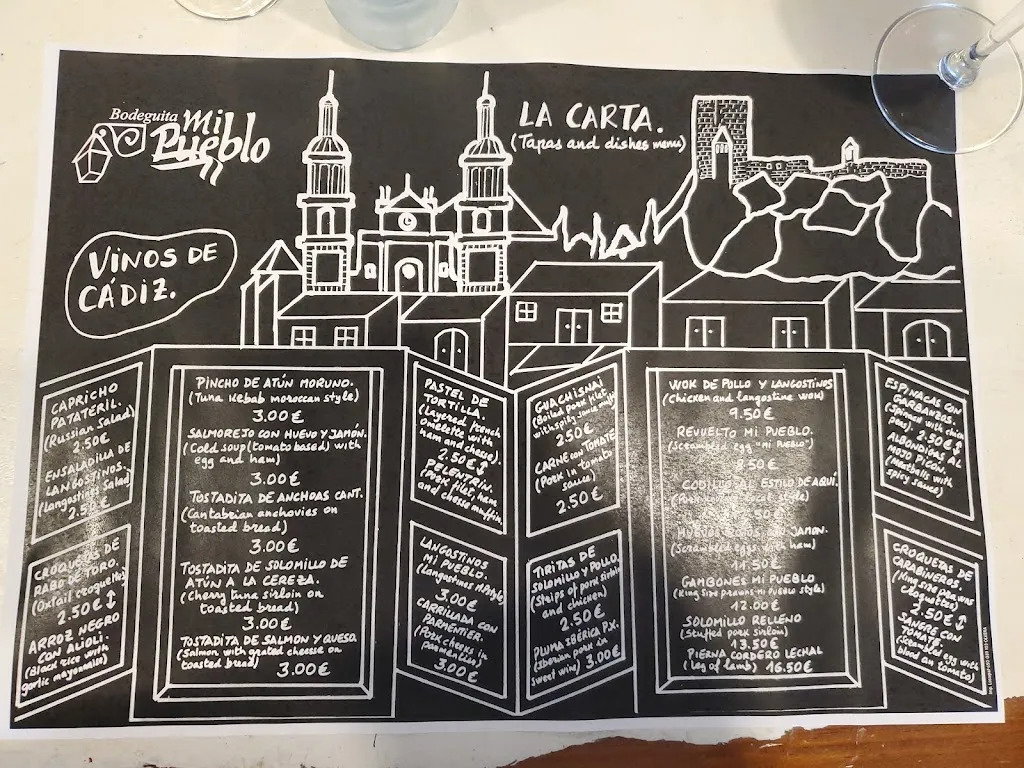 Bodeguita
Mi
Pueblo
LA CARTA.
(Tapas and dishes menu)
VINOS DE
CÁDIZ.
CAPRICHO
PATATERIL.
(Russian Salad)
2.50€
ENSALADILLA DE
LANGOSTINOS.
(Langostines Salad)
2.50€
CROQUETAS DE
RABO DE TORO.
(Oxtail croquettes)
2.50€↕
ARROZ NEGRO
CON ALIOLI.
(Black rice with
garlic mayonnaise)
PINCHO DE ATÚN MORUNO.
(Tuna Kebab moroccan style)
3.00€
SALMOREJO CON HUEVO Y JAMÓN.
(Cold soup (tomato based) with
egg and ham)
3.00€
TOSTADITA DE ANCHOAS CANT.
(Cantabrian anchovies on
toasted bread)
3.00€
TOSTADITA DE SOLOMILLO DE
ATÚN A LA CEREZA.
(Cherry tuna sirloin on
toasted bread)
3.00€
TOSTADITA DE SALMON Y QUESO.
(Salmon with grated cheese on
toasted bread)
3.00€
PASTEL DE
TORTILLA.
(Layered french
omelette with
ham and cheese).
2.50€↕
PELENTRIN.
(Pork filet, ham
and cheese muffin.
LANGOSTINOS
MI PUEBLO.
(Langostines
3.00€
CARRILLADA CON
PARMENTIER.
(Pork cheeks in
3.00€
GUACHISNAI
(Boiled pork filet
with spicy sauce muffin)
2.50€
CARNE CON TOMATE
(Pork in tomato
sauce)
2.50€
TIRITAS DE
SOLOMILLO Y POLLO.
(Strips of pork sirloin
and chicken)
2.50€
PLUMA IBÉRICA P.X.
(Iberian pork in
sweet wine) 3.00€
WOK DE POLLO Y LANGOSTINOS
(Chicken and langostine wok)
9.50€
REVUELTO MI PUEBLO.
(Scrambled egg "MI PUEBLO")
8.50€
CODILLO AL ESTILO DE AQUÍ.
local style)
50€
HUEVOS JAMÓN.
(Scrambled eggs with ham)
11.50€
GAMBONES MI PUEBLO
(King size prawns MI PUEBLO style)
12.00€
SOLOMILLO RELLENO
(Stuffed pork sirloin)
13.50€
PIERNA CORDERO LECHAL
(Leg of lamb) 16.50€
ESPINACAS CON
GARBANZOS.
(Spinach with chick
peas). 2.50€↕
ALBONDIGAS AL
MOJO PICON.
(Meatballs with
spicy sauce)
CROQUETAS DE
CARABINEROS
(King size prawns
croquettes)
2.50€↕
SANGRE CON
TOMATE
(Scrambled egg with
blood an tomato)